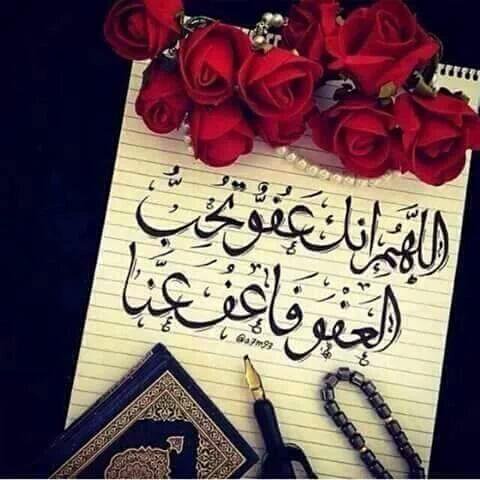 اللَّهُمَّ إنك عَفُوٌّ تُحِبُّ
العَفْوَ فَاعْفُ عَنَّا
@a7m93